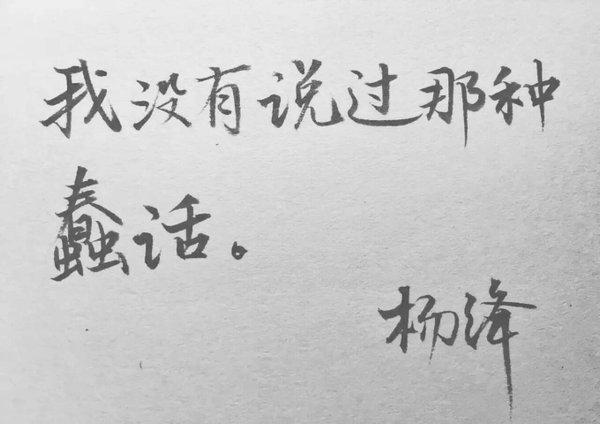 我没有说过那种
蠢话。
杨绛